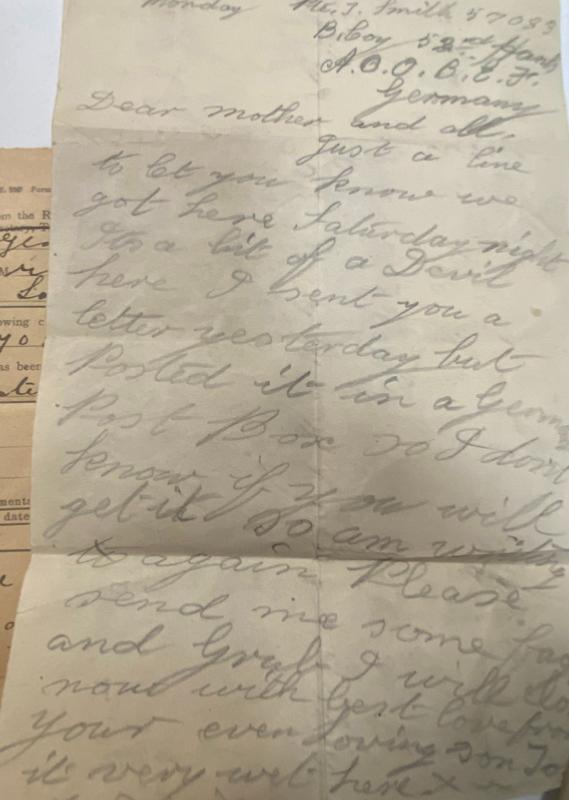 Monday Pte. J. Smith 57089
B. Coy 52nd Hants
A.O.O. B.E.F.
Germany
Dear mother and all,
Just a line
to let you know we
got here Saturday night
Its a bit of a Devil
here I sent you a
letter yesterday but
Posted it in a Germ
Post Box so I dont
know if you will
get it so am writing
to again Please
send me some fag
and Grub I will clo
now with best love from
Your ever loving son Jo
it very wet here x
om the R
owing c
yo
as been
ments
date